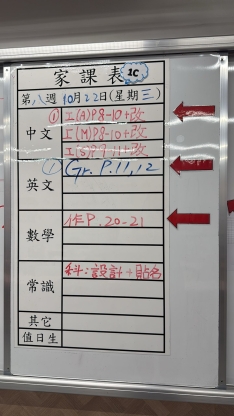 家課表 1C
第八週 10月22日(星期三)
中文 ① 工(A)P.8-10+改
工(M)P.8-10+改
工(S)P.7-11+改
英文 ① Gr. P.11,12
數學 作P. 20-21
常識 科:設計+貼名
其它
值日生